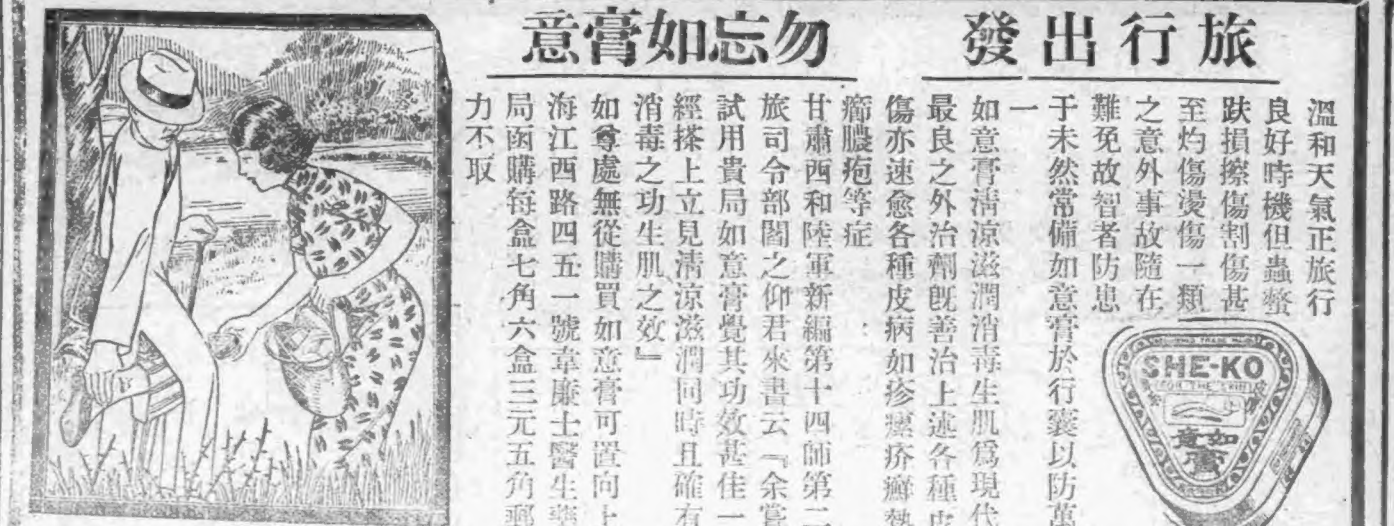 旅行出發
勿忘如意膏
溫和天氣正旅行
良好時機但蟲螫
趺損擦傷割傷甚
至灼傷燙傷一類
之意外事故隨在
難免故智者防患
于未然常備如意膏於行囊以防萬
一
如意膏清涼滋潤消毒生肌爲現代
最良之外治劑旣善治上述各種皮
傷亦速愈各種皮病如疹瘰疥癬熱
癤膿疱等症
甘肅西和陸軍新編第十四師第二
旅司令部閻之仰君來書云『余嘗
試用貴局如意膏覺其功效甚佳一
經搽上立見清涼滋潤同時且確有
消毒之功生肌之效』
如尊處無從購買如意膏可置向上
海江西路四五一號韋廉士醫生藥
局函購每盒七角六盒三元五角郵
力不取
SHE-KO
FOR THE SKIN
如意
膏